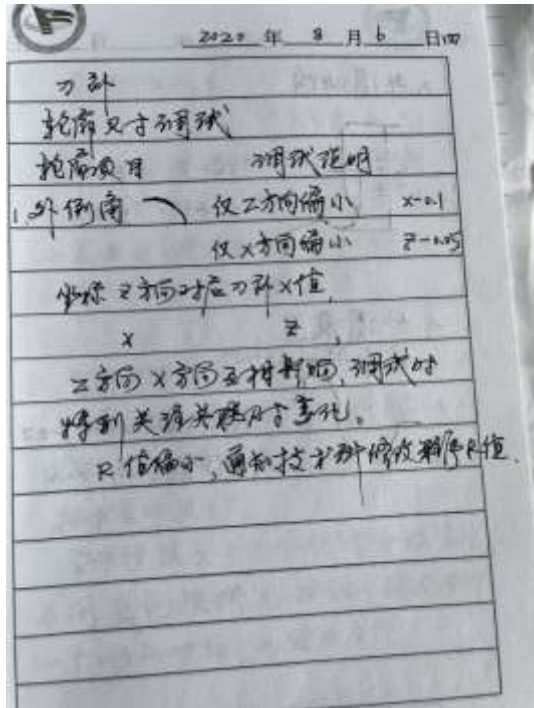 2020 年 8 月 6 日四
刀补
轮廓尺寸调试
轮廓项目 调试说明
1.外倒角 仅Z方向偏小 X-0.1
仅X方向偏小 Z-0.05
坐标Z方向对应刀补X值,
X Z,
Z方向X方向互相影响,调试时
特别关注关联尺寸变化。
R值偏小,通知技术科修改程序R值.